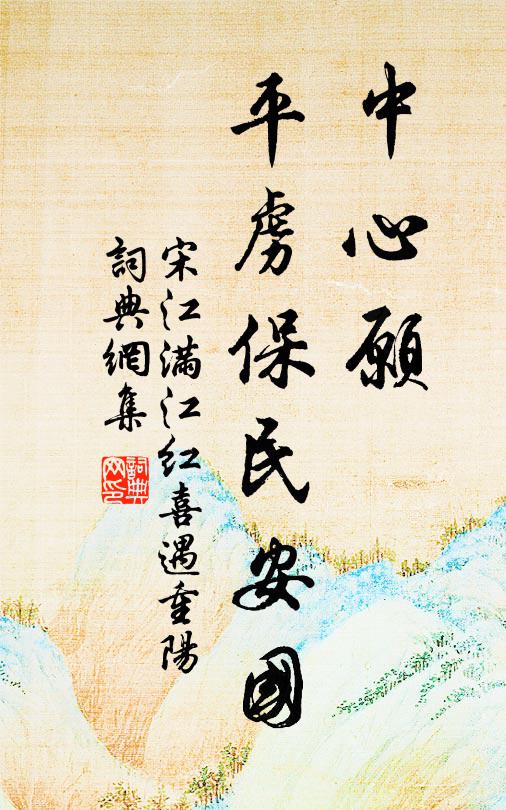 中心願
平虜保民安國
宋江满江红喜遇重陽
詞典網集
詞典
网印